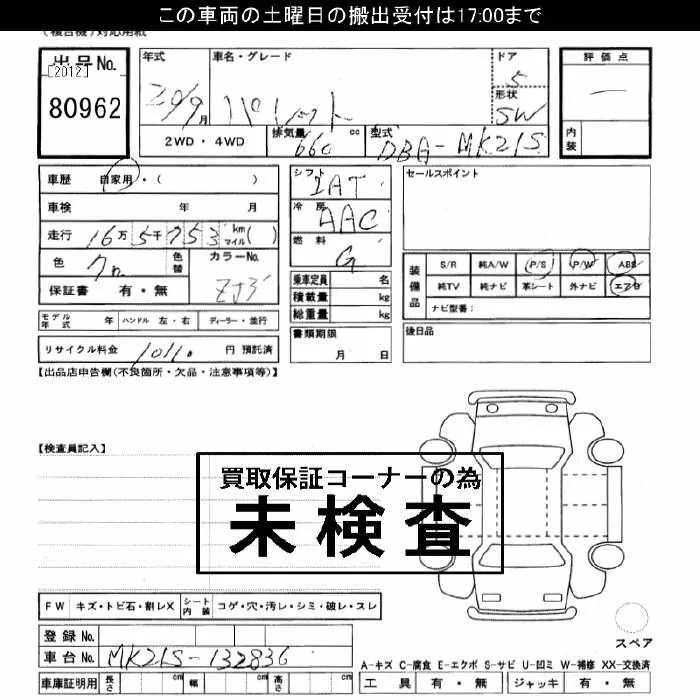 この車両の土曜日の搬出受付は17:00まで
(複合機)対応用紙
出品No. [2012]
80962
年式 20/9月
車名・グレード パレット
ドア 5
形状 SW
2WD・4WD
排気量 660 cc
型式 DBA-MK21S
評価点
—
内装
車歴 自家用・( )
車検 年 月
走行 16万5千753 km マイル( )
色 色替
カラーNo. ZJ3
保証書 有・無
シフト IAT
冷房 AAC
燃料 G
乗車定員 名
積載量 kg
総重量 kg
セールスポイント
装備品
S/R 純A/W P/S P/W ABS
純TV 純ナビ 革シート 外ナビ エアB
ナビ型番:
モデル年式 年 ハンドル 左・右 ディーラー・並行
書類期限 月 日
後日品
リサイクル料金 円 預託済
【出品店申告欄(不良箇所・欠品・注意事項等)】
【検査員記入】
買取保証コーナーの為
未検査
FW キズ・トビ石・割レX シート内装 コゲ・穴・汚レ・シミ・破レ・スレ
スペア
登録No.
車台No. MK21S-132836
A-キズ C-腐食 E-エクボ S-サビ U-凹ミ W-補修 XX-交換済
車庫証明用 長さ cm 幅 cm 高さ cm
工具 有・無 ジャッキ 有・無